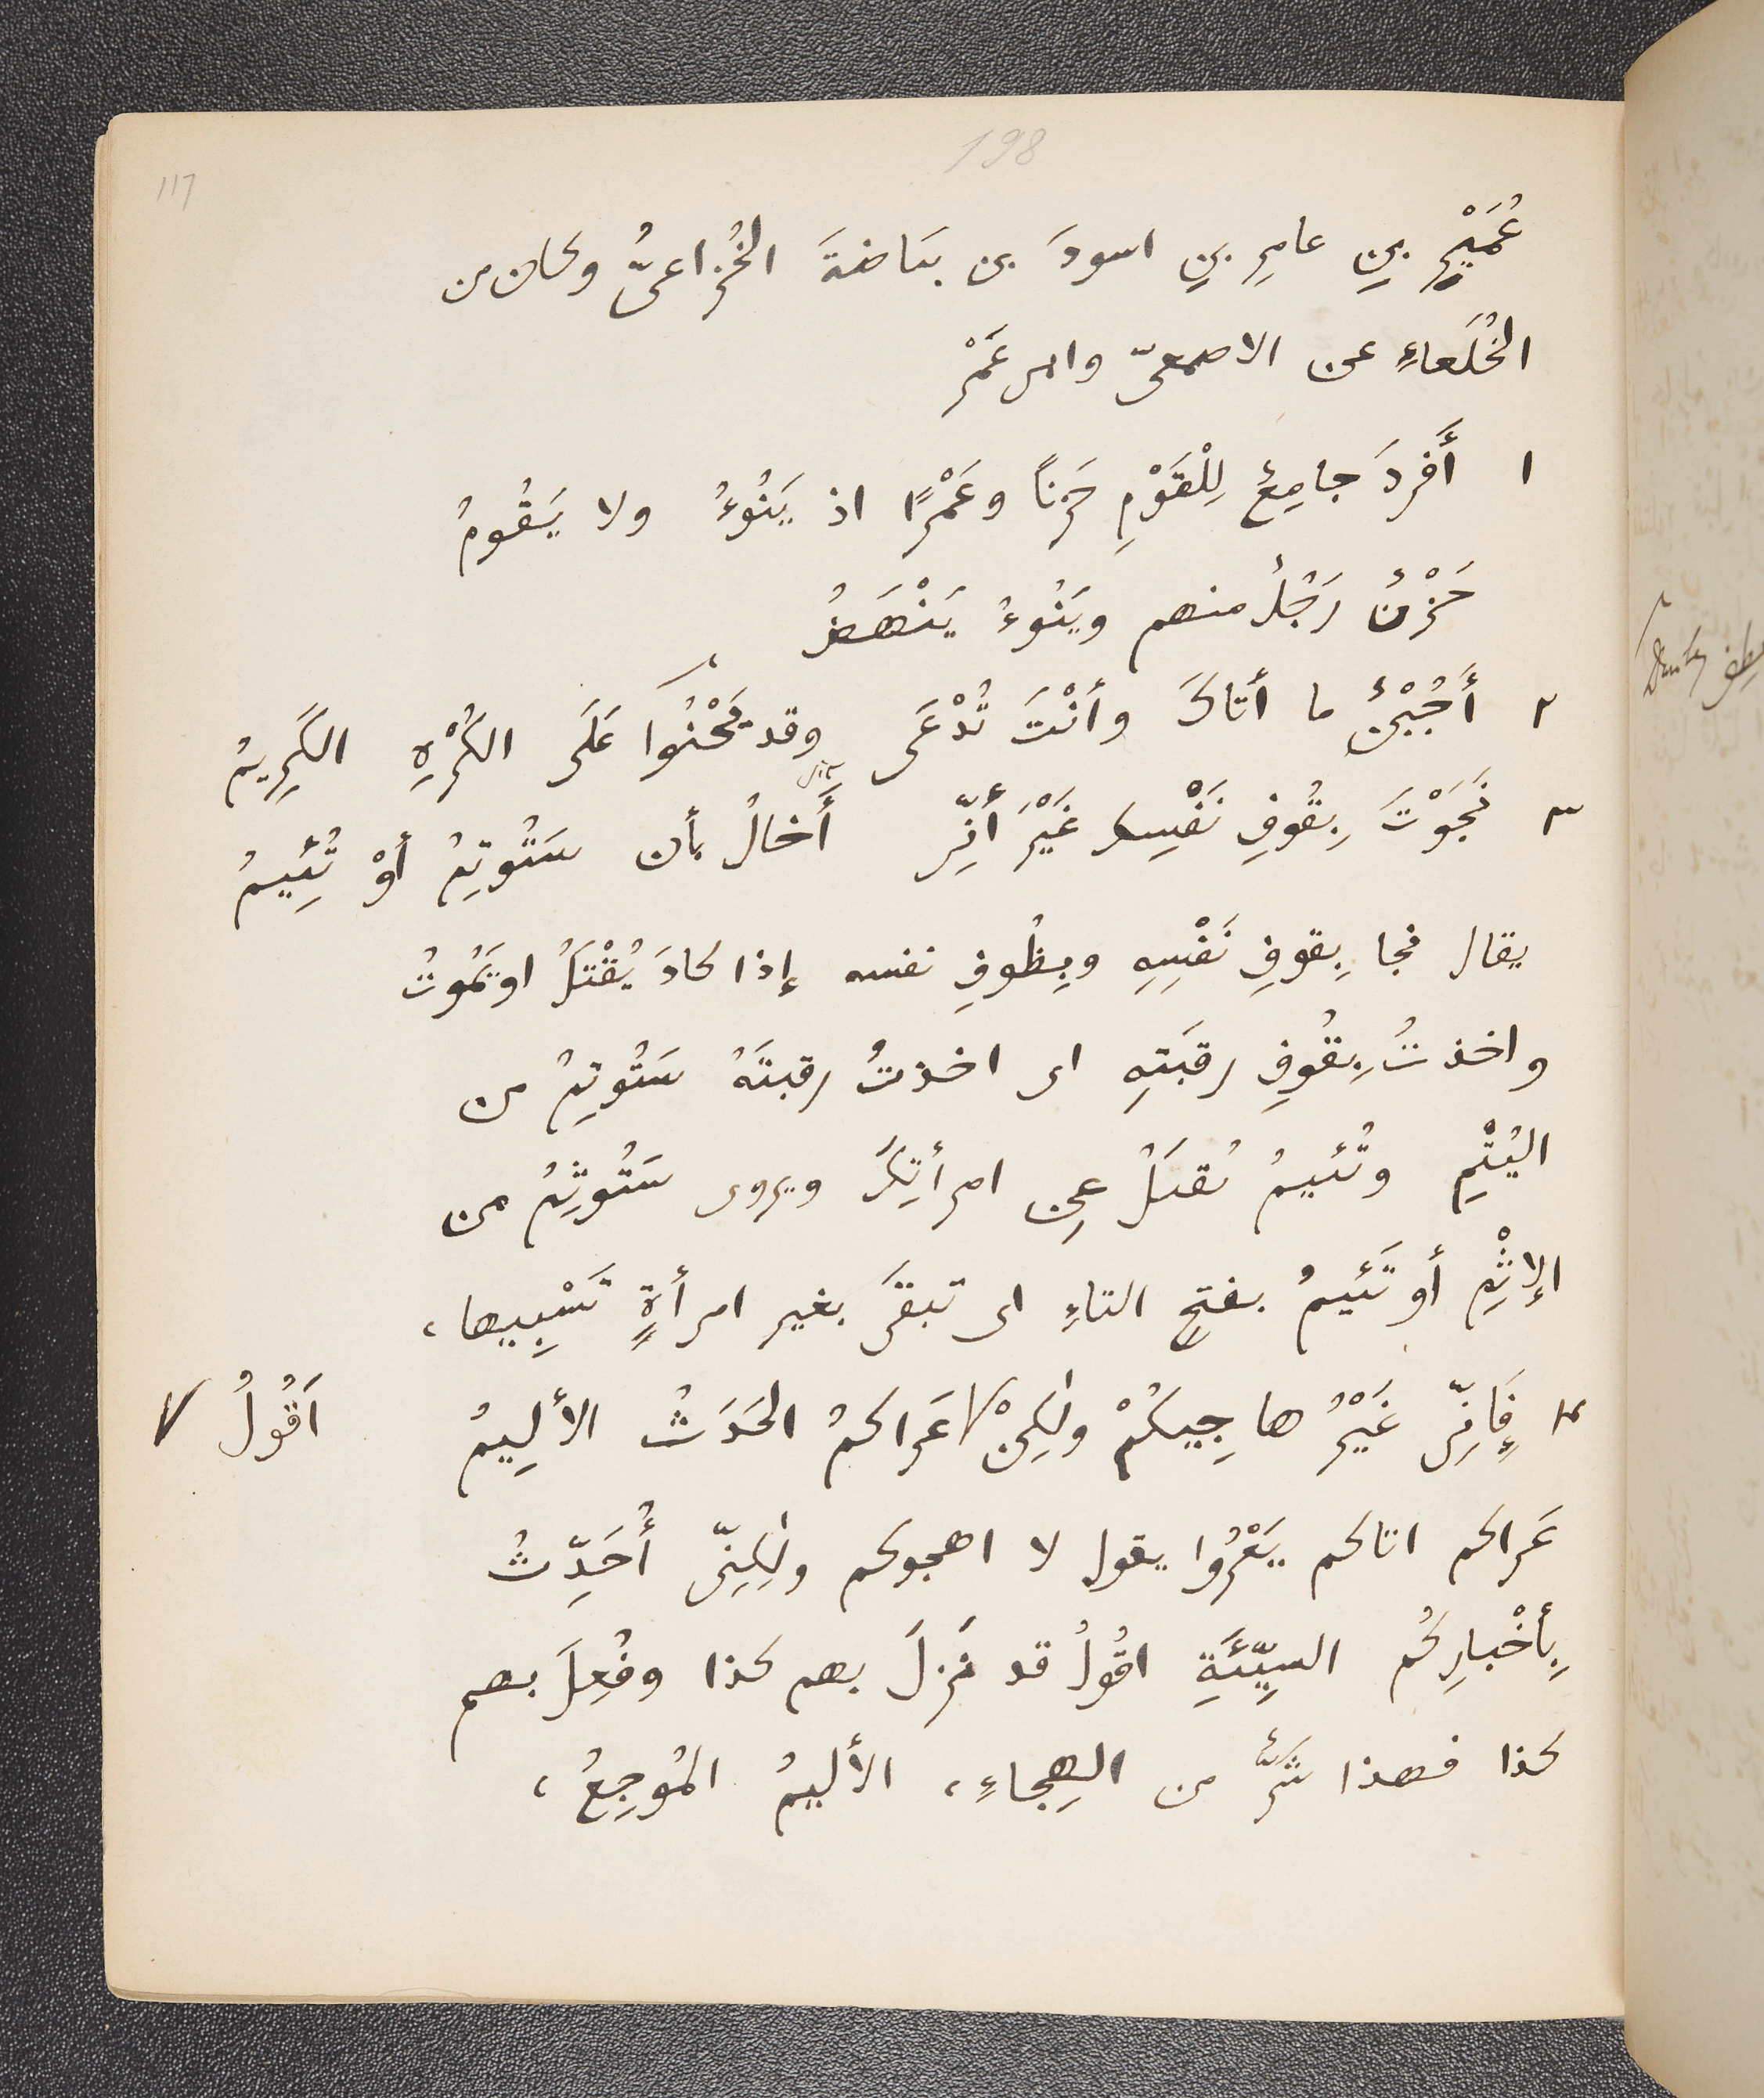 198
117
عُمَيْرِ بنِ عامِرِ بنِ اسودَ بن بيَاضةَ الخُزاعىُّ وكان من
الخُلَعاءِ عن الاصمعىّ وابى عَمْرٍ
١ أَفردَ جامِعٌ لِلْقَوْمِ حَزنًا وعَمْرًا اذ يَنُوءُ ولا يَقُومُ
حَزْنٌ رَجُلٌ منهم ويَنُوءُ يَنْهَضُ
٢ أَجُبْنٌ ما أتاكَ وأنْتَ تُدْعَى وقد يَحْنُوا عَلَى الكُرْهِ الكَرِيمُ
٣ نَجَوْتَ بِقُوفِ نَفْسِكَ غَيْرَ أنّى أَخالُ بأن سَتُوتِمُ أوْ تُئِيمُ
يقال نجا بِقوفِ نَفْسِهِ وبِظُوفِ نفسه إذا كادَ يُقْتَلُ او يَمُوتُ
واخذتُ بِقُوفِ رقبَتهِ اى اخذتُ رقبتَهُ سَتُوتِمُ من
اليُتْمِ وتُئيمُ تُقتَلُ عن امرأتِكَ ويروى سَتُوثِمُ من
الإثْمِ أو تَئيمُ بفتحِ التاءِ اى تبقَى بغير امرأةٍ تَسْبِيها،
٤ فَإِنّى غَيْرُ هاجِيكُمْ ولٰكِنْ عَراكمُ الحَدَثُ الأَلِيمُ
اَقُولُ
عَراكم اتاكم يَعْرُوا يقول لا اهجوكم ولٰكِنّى أُحَدِّثُ
بِأَخْبارِكُم السيّئَةِ اقُولُ قد نَزلَ بهم كذا وفُعِلَ بهم
كذا فهذا شَرٌّ من الهِجاءِ، الأليمُ المُوجِعُ،